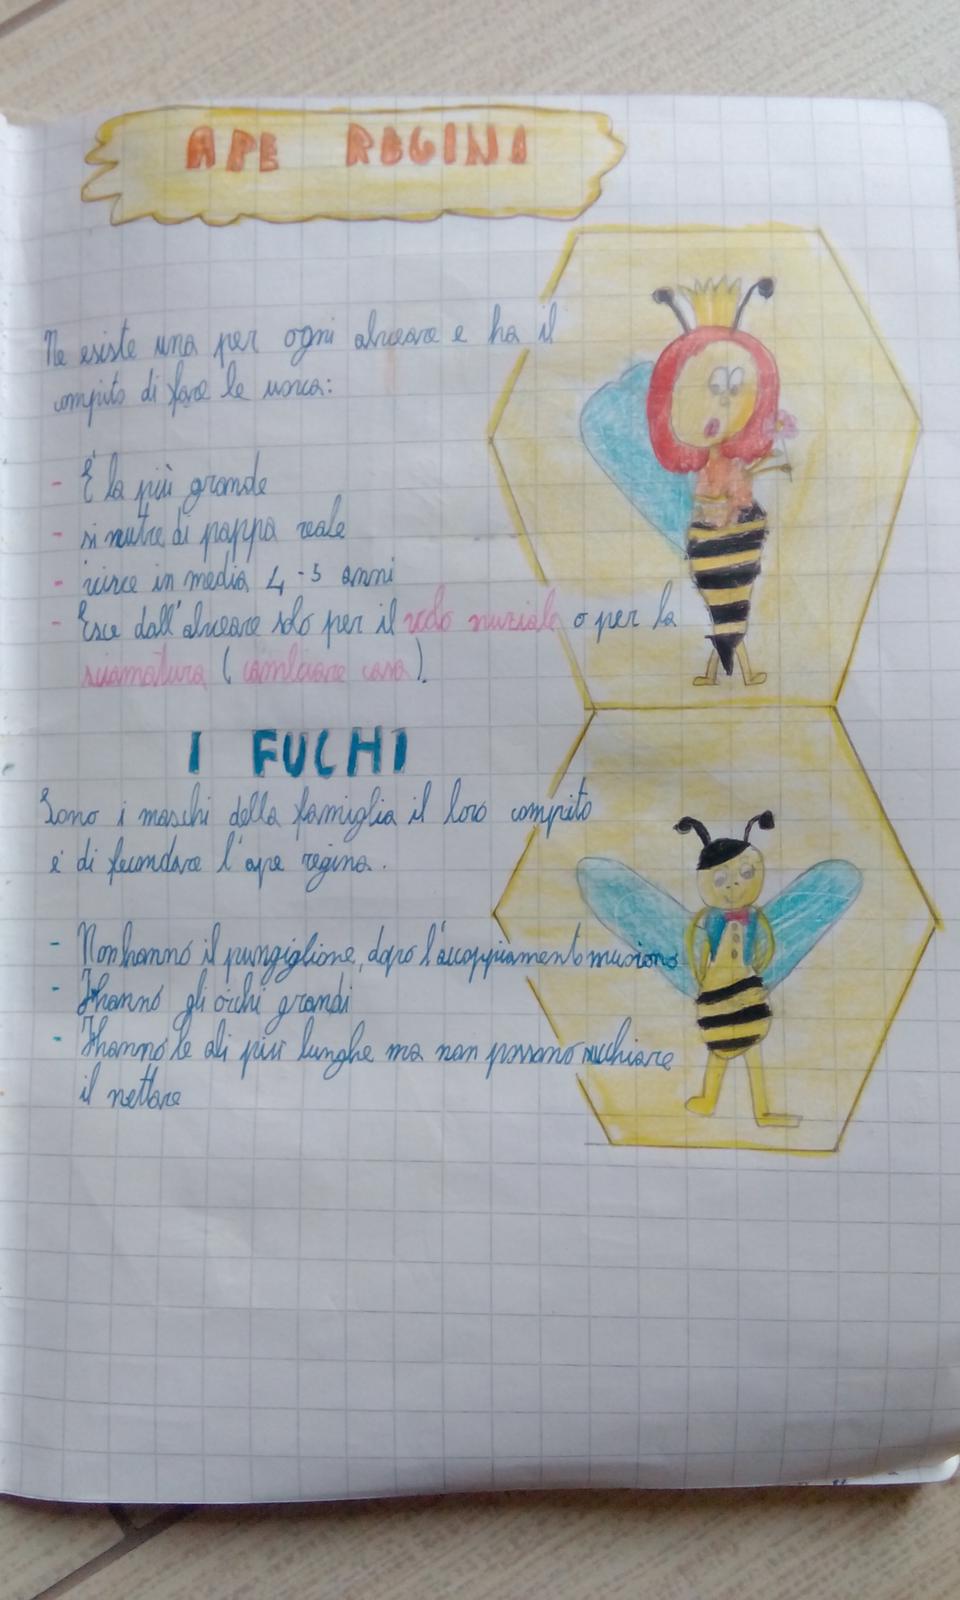 APE REGINI
Ne esiste una per ogni alveare e ha il
compito di fare le uova:
- È la più grande
- si nutre di pappa reale
- vive in media 4-5 anni
- Esce dall'alveare solo per il volo nuziale o per la
sciamatura (cambiare casa).
I FUCHI
Sono i maschi della famiglia il loro compito
e' di fecondare l'ape regina.
- Non hanno il pungiglione, dopo l'accoppiamento muoiono
- hanno gli occhi grandi
- hanno le ali più lunghe ma non possono succhiare
il nettare